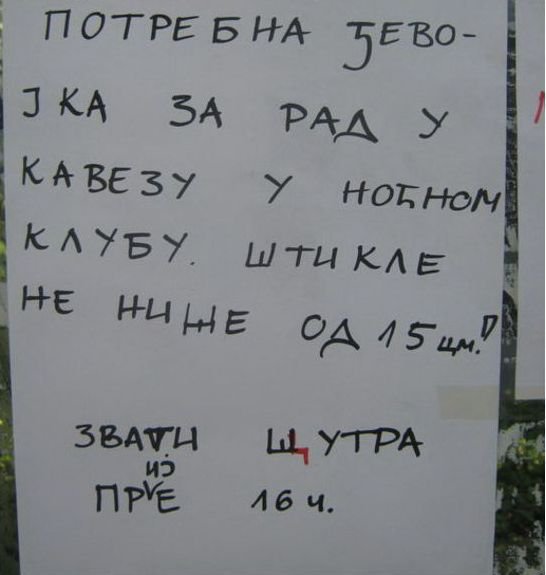 ПОТРЕБНА ЂЕВО-
ЈКА ЗА РАД У
КАВЕЗУ У НОЋНОМ
КЛУБУ. ШТИКЛЕ
НЕ НИЖЕ ОД 15 цм.!
ЗВАТИ Щ УТРА
ПРИЈЕ 16 ч.